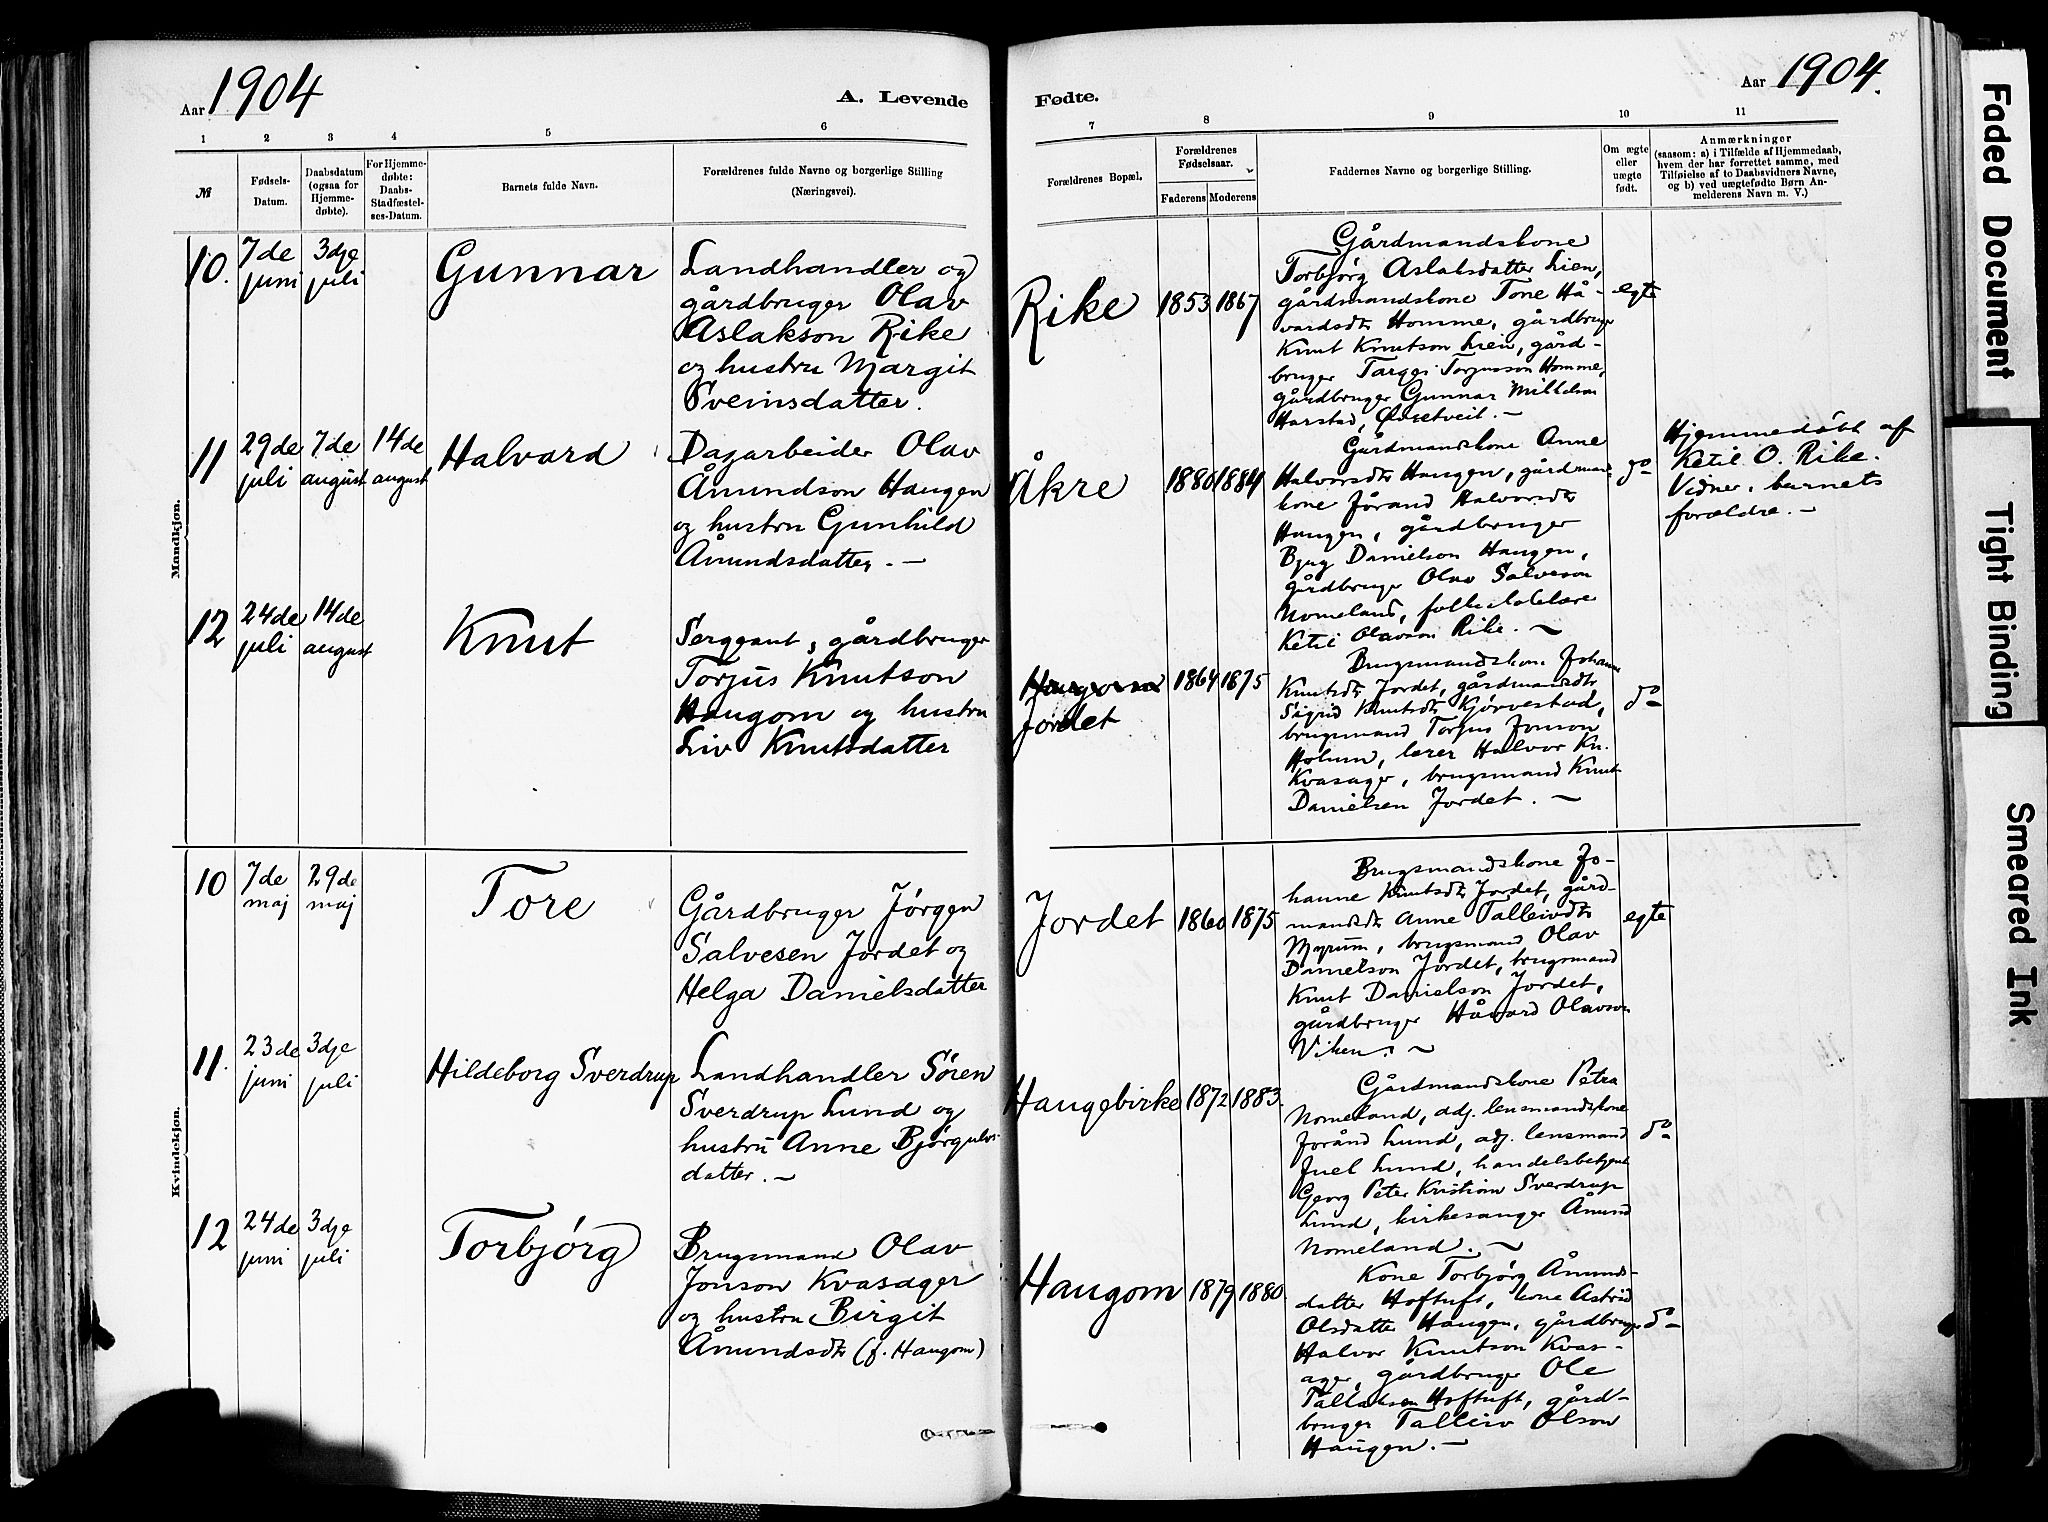 54
Aar 1904
A. Levende
Fødte.
Aar 1904.
1
2
3
4
5
6
7
8
9
10
11
№
Fødsels-
Datum.
Daabsdatum
(ogsaa for
Hjemme-
døbte).
For Hjemme-
døbte:
Daabs-
Stadfæstel-
ses-Datum.
Barnets fulde Navn.
Forældrenes fulde Navne og borgerlige Stilling
(Næringsvei).
Forældrenes Bopæl.
Forældrenes
Fødselsaar.
Faderens
Moderens
Faddernes Navne og borgerlige Stilling.
Om ægte
eller
uægte
født.
Anmærkninger
(saasom: a) i Tilfælde af Hjemmedaab,
hvem der har forrettet samme, med
Tilføielse af to Daabsvidners Navne,
og b) ved uægtefødte Børn An-
melderens Navn m. V.)
Mandkjøn.
10.
7de
juni
3dje
juli
Gunnar
Landhandler og
gårdbruger Olav
Aslakson Rike
og hustru Margit
Sveinsdatter.
Rike
1853
1867
Gårdmandskone
Torbjørg Aslaksdatter Lien,
gårdmandskone Tone Hå-
vardsdtr Homme, gårdbruger
Knut Knutson Lien, gård-
bruger Targei Torjusson Homme,
gårdbruger Gunnar Mikkelson
Harstad, Øvretveit. -
egte
11
29de
juli
7de
august
14de
august
Halvard
Dagarbeider Olav
Åmundson Haugen
og hustru Gunhild
Åmundsdatter. -
Åkre
1880
1884
Gårdmandskone Anne
Halvorsdtr Haugen, gårdmands-
kone Jörand Halvorsdtr
Haugen, gårdbruger
Bjug Danielson Haugen,
gårdbruger Olav Salveson
Nomeland, folkeskolelærer
Ketil Olavson Rike. ~
do
Hjemmedöbt af
Ketil O. Rike.
Vidner, barnets
forældre. -
12
24de
juli
14de
august
Knut
Sergeant, gårdbruger
Torjus Knutson
Haugom og hustru
Liv Knutsdatter
Haugom
Jordet
1864
1875
Brugsmandskone Johanne
Knutsdtr Jordet, gårdmandsdtr
Sigrid Knutsdtr Kjørvestad,
brugsmand Torjus Jonson
Holum, lærer Halvor Kn.
Kvasager, brugsmand Knut
Danielsen Jordet. ~
do
Kvindekjøn.
10
7de
maj
29de
maj
Tore
Gårdbruger Jørgen
Salvesen Jordet og
Helga Danielsdatter
Jordet
1860
1875
Brugsmandskone Jo-
hanne Knutsdtr Jordet, gård-
mandsdtr Anne Talleivsdtr
Myrum, brugsmand Olav
Danielson Jordet, brugsmand
Knut Danielson Jordet,
gårdbruger Håvard Olavson
Viken. ~
egte
11.
23de
juni
3dje
juli
Hildeborg Sverdrup
Landhandler Sören
Sverdrup Lund og
hustru Anne Bjørgulvs-
datter. ~
Haugebirke
1872
1883.
Gårdmandskone Petra
Nomeland, adj. lensmandskone
Joränd Lund, adj. lensmand
Juel Lund, handelsbetjent
Georg Peter Kristian Sverdrup
Lund, kirkesanger Åmund
Nomeland. ~
do
12
24de
juni
3dje
juli
Torbjørg
Brugsmand Olav
Jonson Kvasager
og hustru Birgit
Åmundsdtr (f. Haugom)
Haugom
1879
1880.
Kone Torbjørg Åmunds-
datter Hoftuft, kone Astrid
Olsdatter Haugen, gårdbruger
Halvor Knutson Kvas-
ager, gårdbruger Ole
Tallaksen Hoftuft, gård-
bruger Talleiv Olson
Haugen. -
do
Faded Document
Tight Binding
Smeared Ink